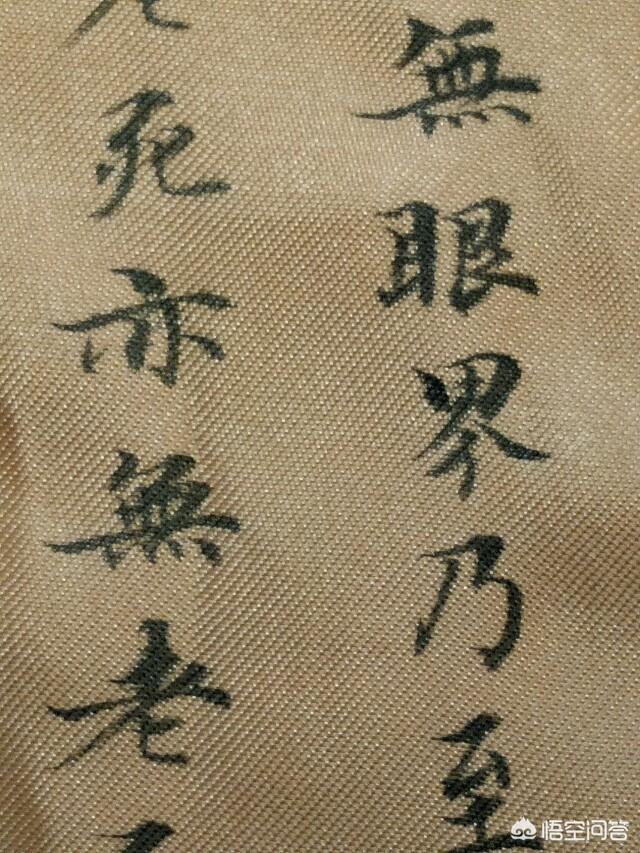 無眼界乃至
死亦無老
悟空问答